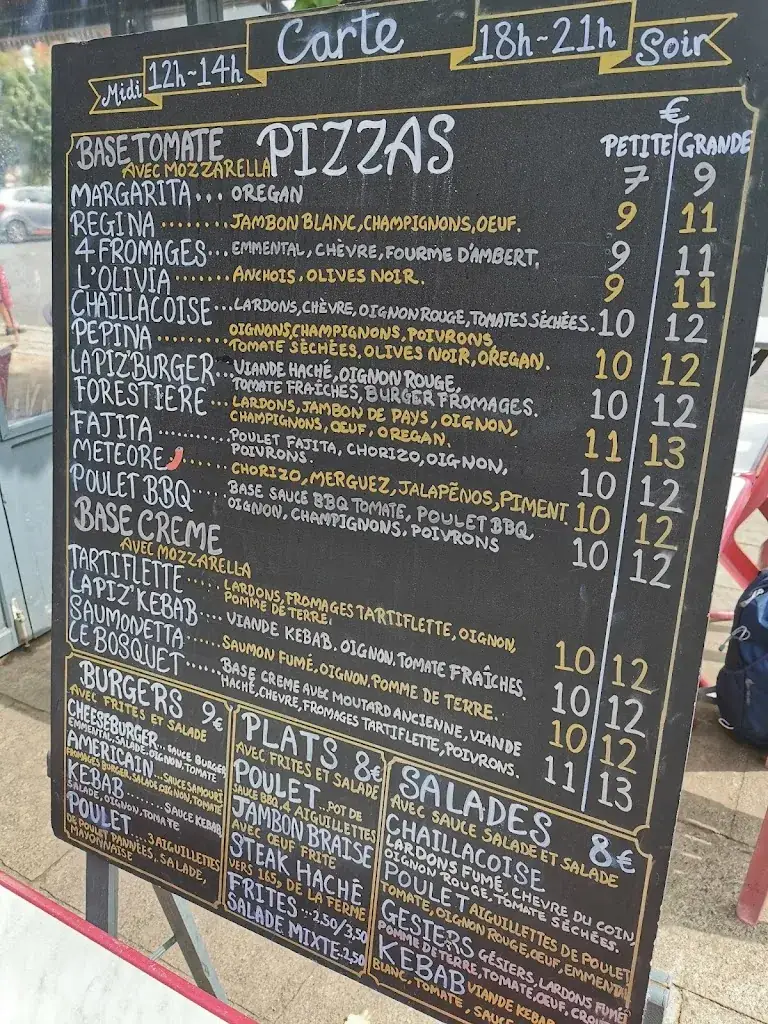 Carte
Midi 12h~14h 18h~21h Soir
€
BASE TOMATE PIZZAS PETITE GRANDE
AVEC MOZZARELLA
MARGARITA... OREGAN 7 9
REGINA........JAMBON BLANC, CHAMPIGNONS, OEUF. 9 11
4 FROMAGES... EMMENTAL, CHÈVRE, FOURME D'AMBERT. 9 11
L'OLIVIA....... ANCHOIS. OLIVES NOIR. 9 11
CHAILLACOISE... LARDONS, CHÈVRE, OIGNON ROUGE, TOMATES SÈCHÉES. 10 12
PEPINA......... OIGNONS, CHAMPIGNONS, POIVRONS,
TOMATE SÈCHÉES, OLIVES NOIR, OREGAN. 10 12
LAPIZ'BURGER... VIANDE HACHÉ, OIGNON ROUGE,
TOMATE FRAÎCHES, BURGER FROMAGES. 10 12
FORESTIERE... LARDONS, JAMBON DE PAYS, OIGNON,
CHAMPIGNONS, OEUF, OREGAN. 11 13
FAJITA.......... POULET FAJITA, CHORIZO, OIGNON,
POIVRONS. 10 12
METEORE....... CHORIZO, MERGUEZ, JALAPEÑOS, PIMENT. 10 12
POULET BBQ..... BASE SAUCE BBQ TOMATE, POULET BBQ,
OIGNON, CHAMPIGNONS, POIVRONS 10 12
BASE CREME
AVEC MOZZARELLA
TARTIFLETTE..... LARDONS, FROMAGES TARTIFLETTE, OIGNON,
POMME DE TERRE. 10 12
LAPIZ'KEBAB... VIANDE KEBAB, OIGNON, TOMATE FRAÎCHES. 10 12
SAUMONETTA..... SAUMON FUMÉ, OIGNON, POMME DE TERRE. 10 12
LE BOSQUET..... BASE CREME AVEC MOUTARD ANCIENNE, VIANDE
HACHÉ, CHEVRE, FROMAGES TARTIFLETTE, POIVRONS. 11 13
BURGERS 9€
AVEC FRITES ET SALADE
CHEESEBURGER... SAUCE BURGER
EMMENTAL, SALADE, OIGNON, TOMATE
AMERICAIN... SAUCE SAMOURÏ
FROMAGES BURGER, SALADE, OIGNON, TOMATE
KEBAB........ SAUCE KEBAB,
SALADE, OIGNON, TOMATE
POULET... 3 AIGUILLETTES
DE POULET PANNÉES, SALADE,
MAYONNAISE
PLATS 8€
AVEC FRITES ET SALADE
POULET.. POT DE
SAUCE BBQ, 4 AIGUILLETTES
JAMBON BRAISE
AVEC OEUF FRITE
STEAK HACHÈ
VERS 165g DE LA FERME
FRITES...2,50/3,50
SALADE MIXTE-2,50
SALADES 8€
AVEC SAUCE SALADE ET SALADE
CHAILLACOISE
LARDONS FUMÉ, CHEVRE DU COIN,
OIGNON ROUGE, TOMATE SÈCHÉES.
POULET AIGUILLETTES DE POULET
TOMATE, OIGNON ROUGE, OEUF, EMMENTAL
GESIERS GÉSIERS, LARDONS FUMÉ
POMME DE TERRE, TOMATE, OEUF,
KEBAB VIANDE KEBAB
BLANC, TOMATE, SAUCE